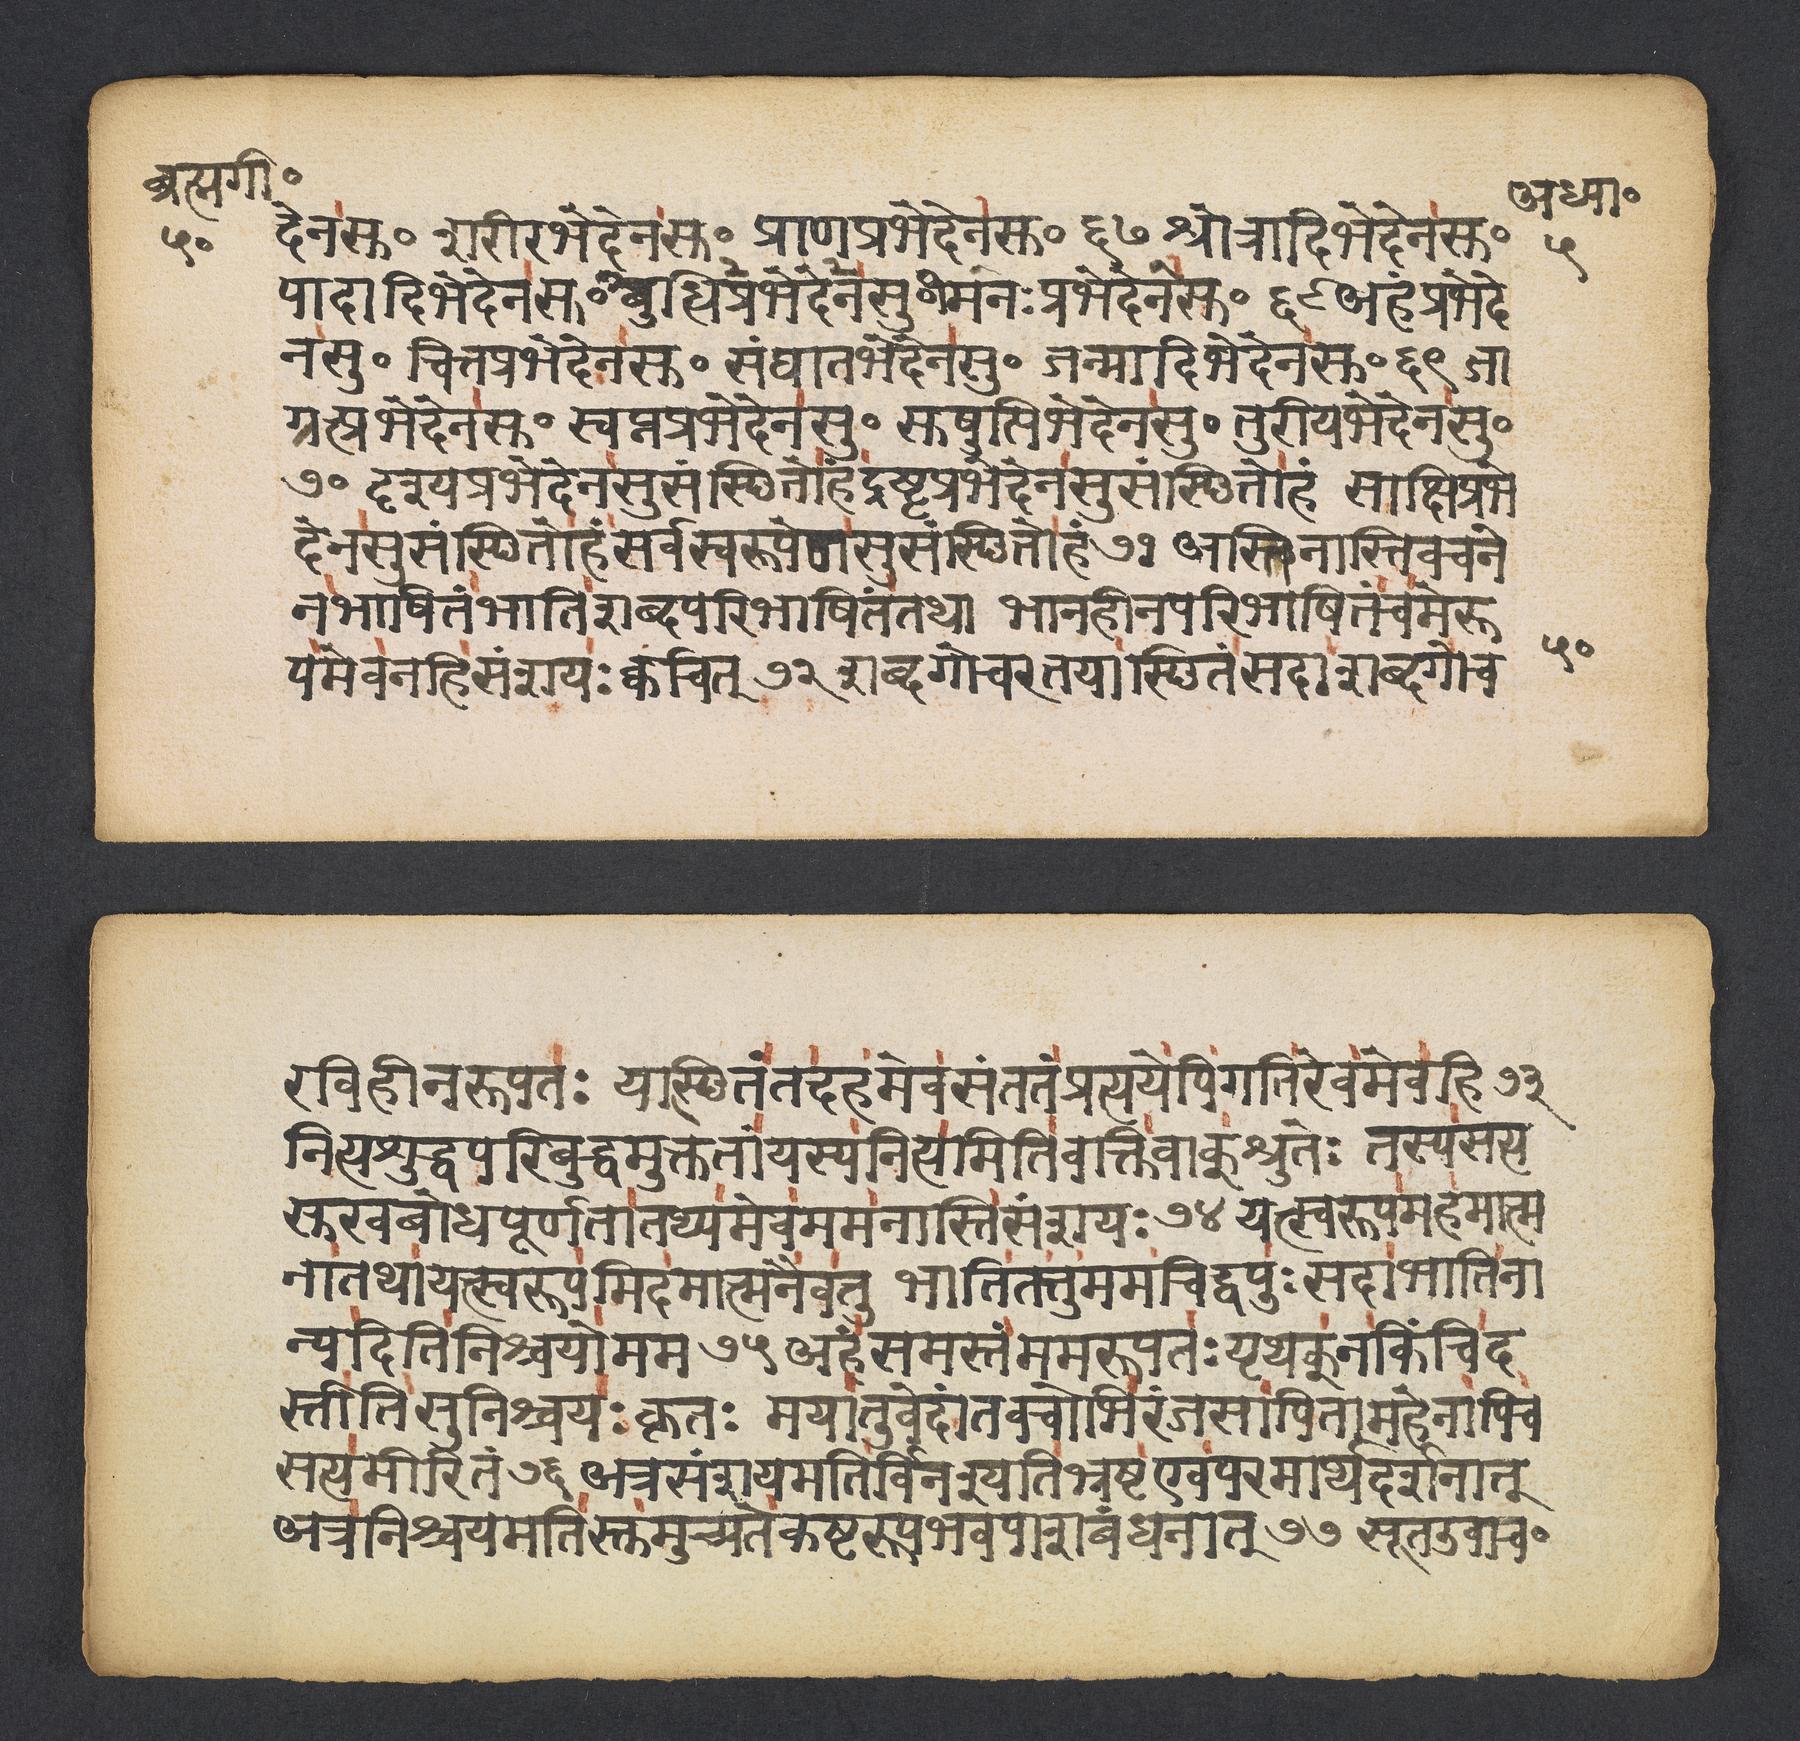 ब्रह्मगी॰
अध्या॰
५०
५
देनसु॰ शरीरभेदेनसु॰ प्राणप्रभेदेनसु॰ ६७ श्रोत्रादिभेदेनसु॰
पादादिभेदेनसु॰ बुद्धिप्रभेदेनसु॰ मनःप्रभेदेनसु॰ ६८ अहंप्रभेदे
नसु॰ चित्तप्रभेदेनसु॰ संघातभेदेनसु॰ जन्मादिभेदेनसु॰ ६९ जा
ग्रत्प्रभेदेनसु॰ स्वप्नप्रभेदेनसु॰ सुषुप्तिभेदेनसु॰ तुरीयभेदेनसु॰
७० दृश्यप्रभेदेनसुसंस्थितोहंद्रष्टृप्रभेदेनसुसंस्थितोहं साक्षिप्रभे
देनसुसंस्थितोहंसर्वस्वरूपेणसुसंस्थितोहं७१ अस्तिनास्तिवचने
नभाषितंभातिशब्दपरिभाषितंतथा भानहीनपरिभाषितंचमेरू
पमेवनहिसंशयःक्वचित् ७२ शब्दगोचरतयास्थितंसदाशब्दगोच
५०
रविहीनरूपतः यास्थितंतदहमेवसंततंप्रत्ययेपिगतिरेवमेवहि ७३
नित्यशुद्धपरिबुद्धमुक्ततांयस्यनित्यमितिवक्तिवाक्श्रुतेः तस्यसत्य
सुखबोधपूर्णतातथ्यमेवममनास्तिसंशयः ७४ यत्स्वरूपमहमात्म
नातथायत्स्वरूपमिदमात्मनैवतु भातितत्तुममचिद्वपुःसदाभातिना
न्यदितिनिश्चयोमम ७५ अहंसमस्तंममरूपतःपृथक्नकिंचिद
स्तीतिसुनिश्चयःकृतः मयातुवेदांतवचोभिरंजसापितामहेनापिच
सत्यमीरितं ७६ अत्रसंशयमतिर्विनश्यतिभ्रष्टएवपरमार्थदर्शनात्
अत्रनिश्चयमतिस्तुमुच्यतेकष्टरूपभवपाशबंधनात् ७७ सूतउवाच॰